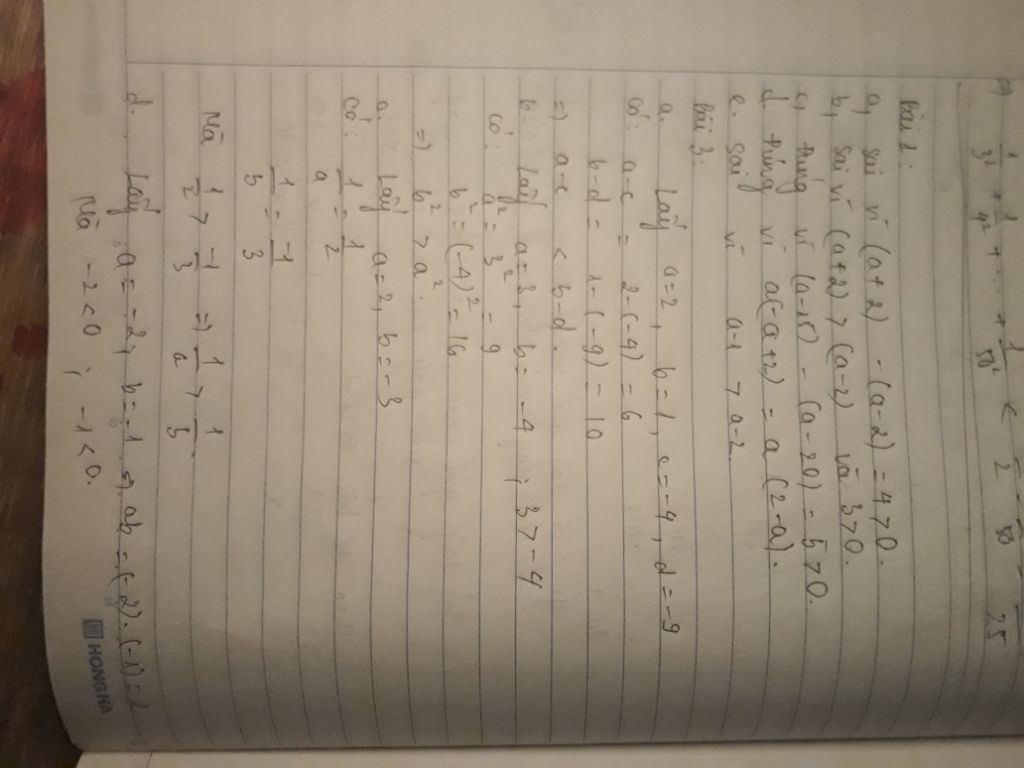 g) 1/3² + 1/4² + ... + 1/50² <
Bài 1:
a) sai vì (a+2) - (a-2) = 4 > 0.
b) sai vì (a+2) > (a-2) và 3 > 0.
c) đúng vì (a-15) - (a-20) = 5 > 0.
d. đúng vì a(-a+2) = a(2-a).
e. sai vì a-1 > a-2.
Bài 3:
a. Lấy a=2, b=1, c=-4, d=-9
có: a-c = 2-(-4) = 6
b-d = 1-(-9) = 10
=) a-c < b-d.
b. Lấy a=3, b=-4 ; 3 > -4
có: a² = 3² = 9
b² = (-4)² = 16
=) b² > a².
Lấy a=2, b=-3
có: 1/a = 1/2
1/b = -1/3
Mà 1/2 > -1/3 =) 1/a > 1/b.
d. Lấy a=-2, b=-1 =) ab = (-2).(-1) = 2
Mà -2<0 ; -1<0.
HONG HA